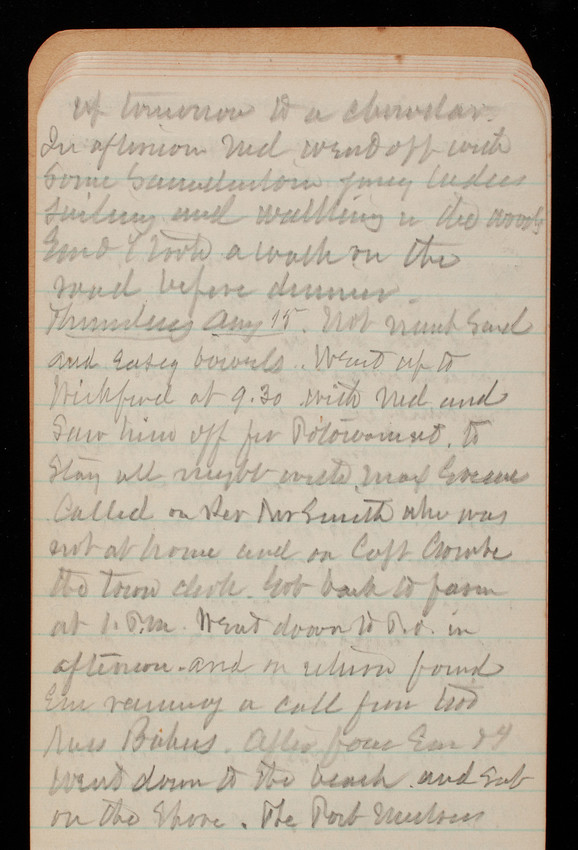 up tomorrow to a chowder.
In afternoon Ned went off with
Some Saunderstown young ladies
Sailing and walking in the woods
Em & I took a walk on the
road before dinner.
Thursday Aug 15. Not much Sand
and easy bowels. Went up to
Wickford at 9.30 with Ned and
Saw him off for Potowomut. to
Stay all night with Max Greene
Called on Rev Mr Smith who was
not at home and on Capt
the town clerk. Got back to farm
at 1. P.M. Went down to P.O. in
afternoon and on return found
Em a call from two
Miss Bakers. After four Em & I
went down to the beach and Sat
on the Shore. The Port